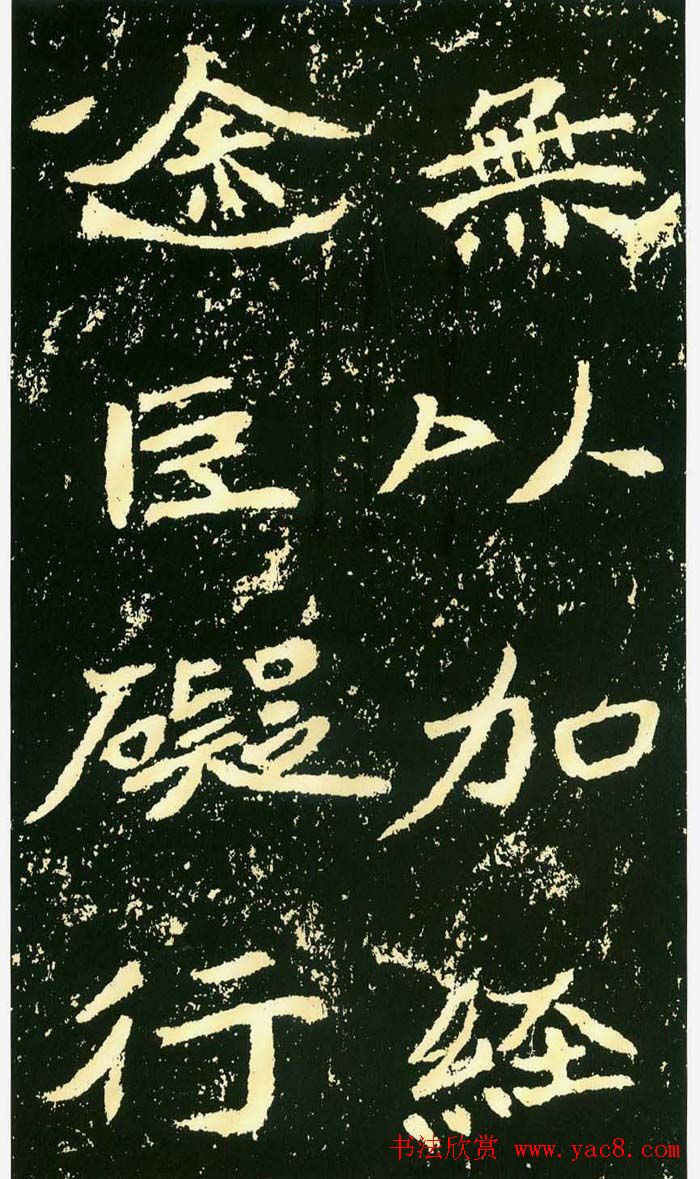 無以加經
途巨礙行
书法欣赏 www.yac8.com